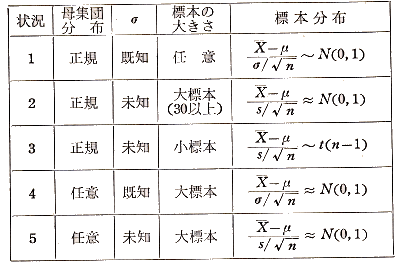 状況 母集団分布 σ 標本の大きさ 標本分布
1 正規 既知 任意 X̄−μ / σ/√n ~ N(0, 1)
2 正規 未知 大標本(30以上) X̄−μ / s/√n ≈ N(0, 1)
3 正規 未知 小標本 X̄−μ / s/√n ~ t(n−1)
4 任意 既知 大標本 X̄−μ / σ/√n ≈ N(0, 1)
5 任意 未知 大標本 X̄−μ / s/√n ≈ N(0, 1)